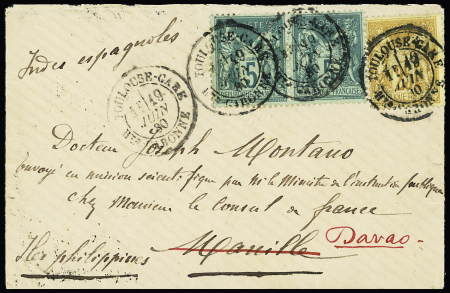 Indes espagnoles
TOULOUSE-GARE
19
JUIN
80
HTE GARONNE
25
TOULOUSE-GARE
19
JUIN
80
HTE GARONNE
Docteur Joseph Montano
Envoyé en mission scientifique par Mr le Ministre de l'instruction publique
chez Monsieur le Consul de france
Manille Davao
Iles philippines